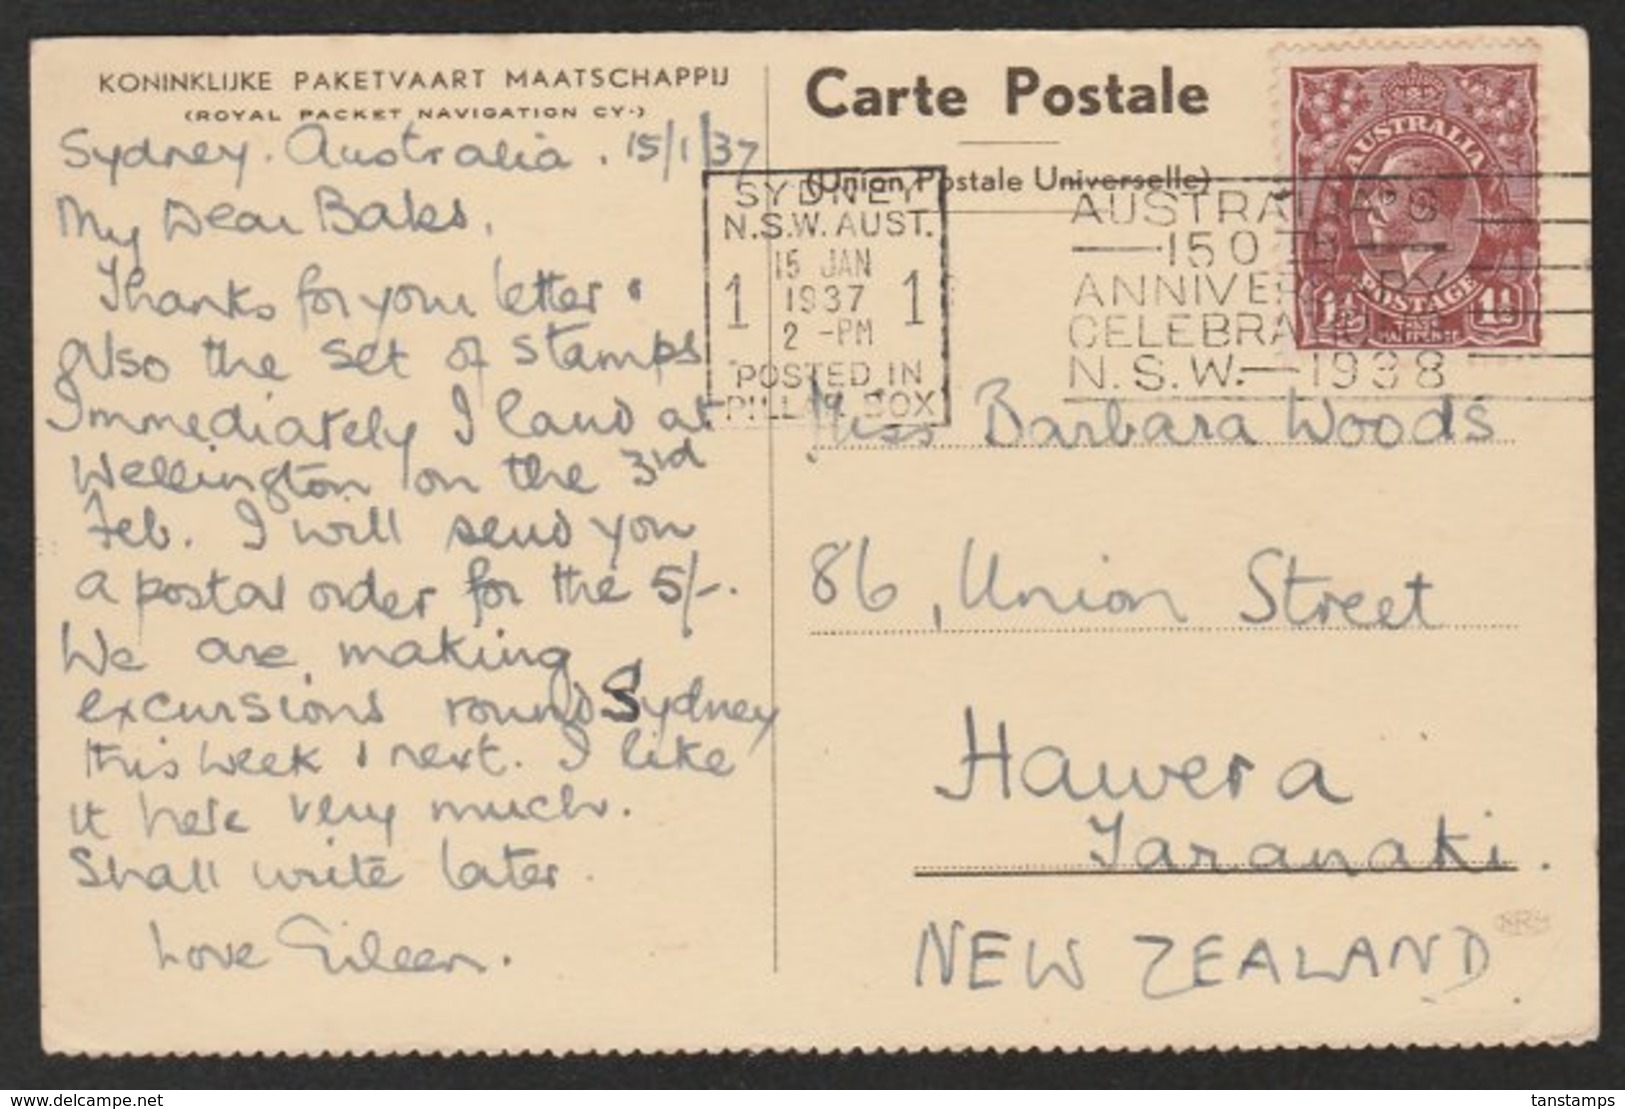 KONINKLIJKE PAKETVAART MAATSCHAPPIJ
(ROYAL PACKET NAVIGATION CY.)
Sydney. Australia. 15/1/37
My Dear Babs,
Thanks for your letter &
also the set of stamps
Immediately I land at
Wellington on the 3rd
Feb. I will send you
a postal order for the 5/-.
We are making
excursions round Sydney
this week & next. I like
it here very much.
Shall write later.
Love Eileen.
Carte Postale
(Union Postale Universelle)
SYDNEY
N.S.W. AUST.
15 JAN
1 1937 1
2 - PM
POSTED IN
PILLAR BOX
AUSTRALIA'S
150TH
ANNIVERSARY
CELEBRATIONS
N.S.W. 1938
AUSTRALIA
POSTAGE
Miss Barbara Woods
86, Union Street
Hawera
Taranaki.
NEW ZEALAND
delcampe.net
tanstamps